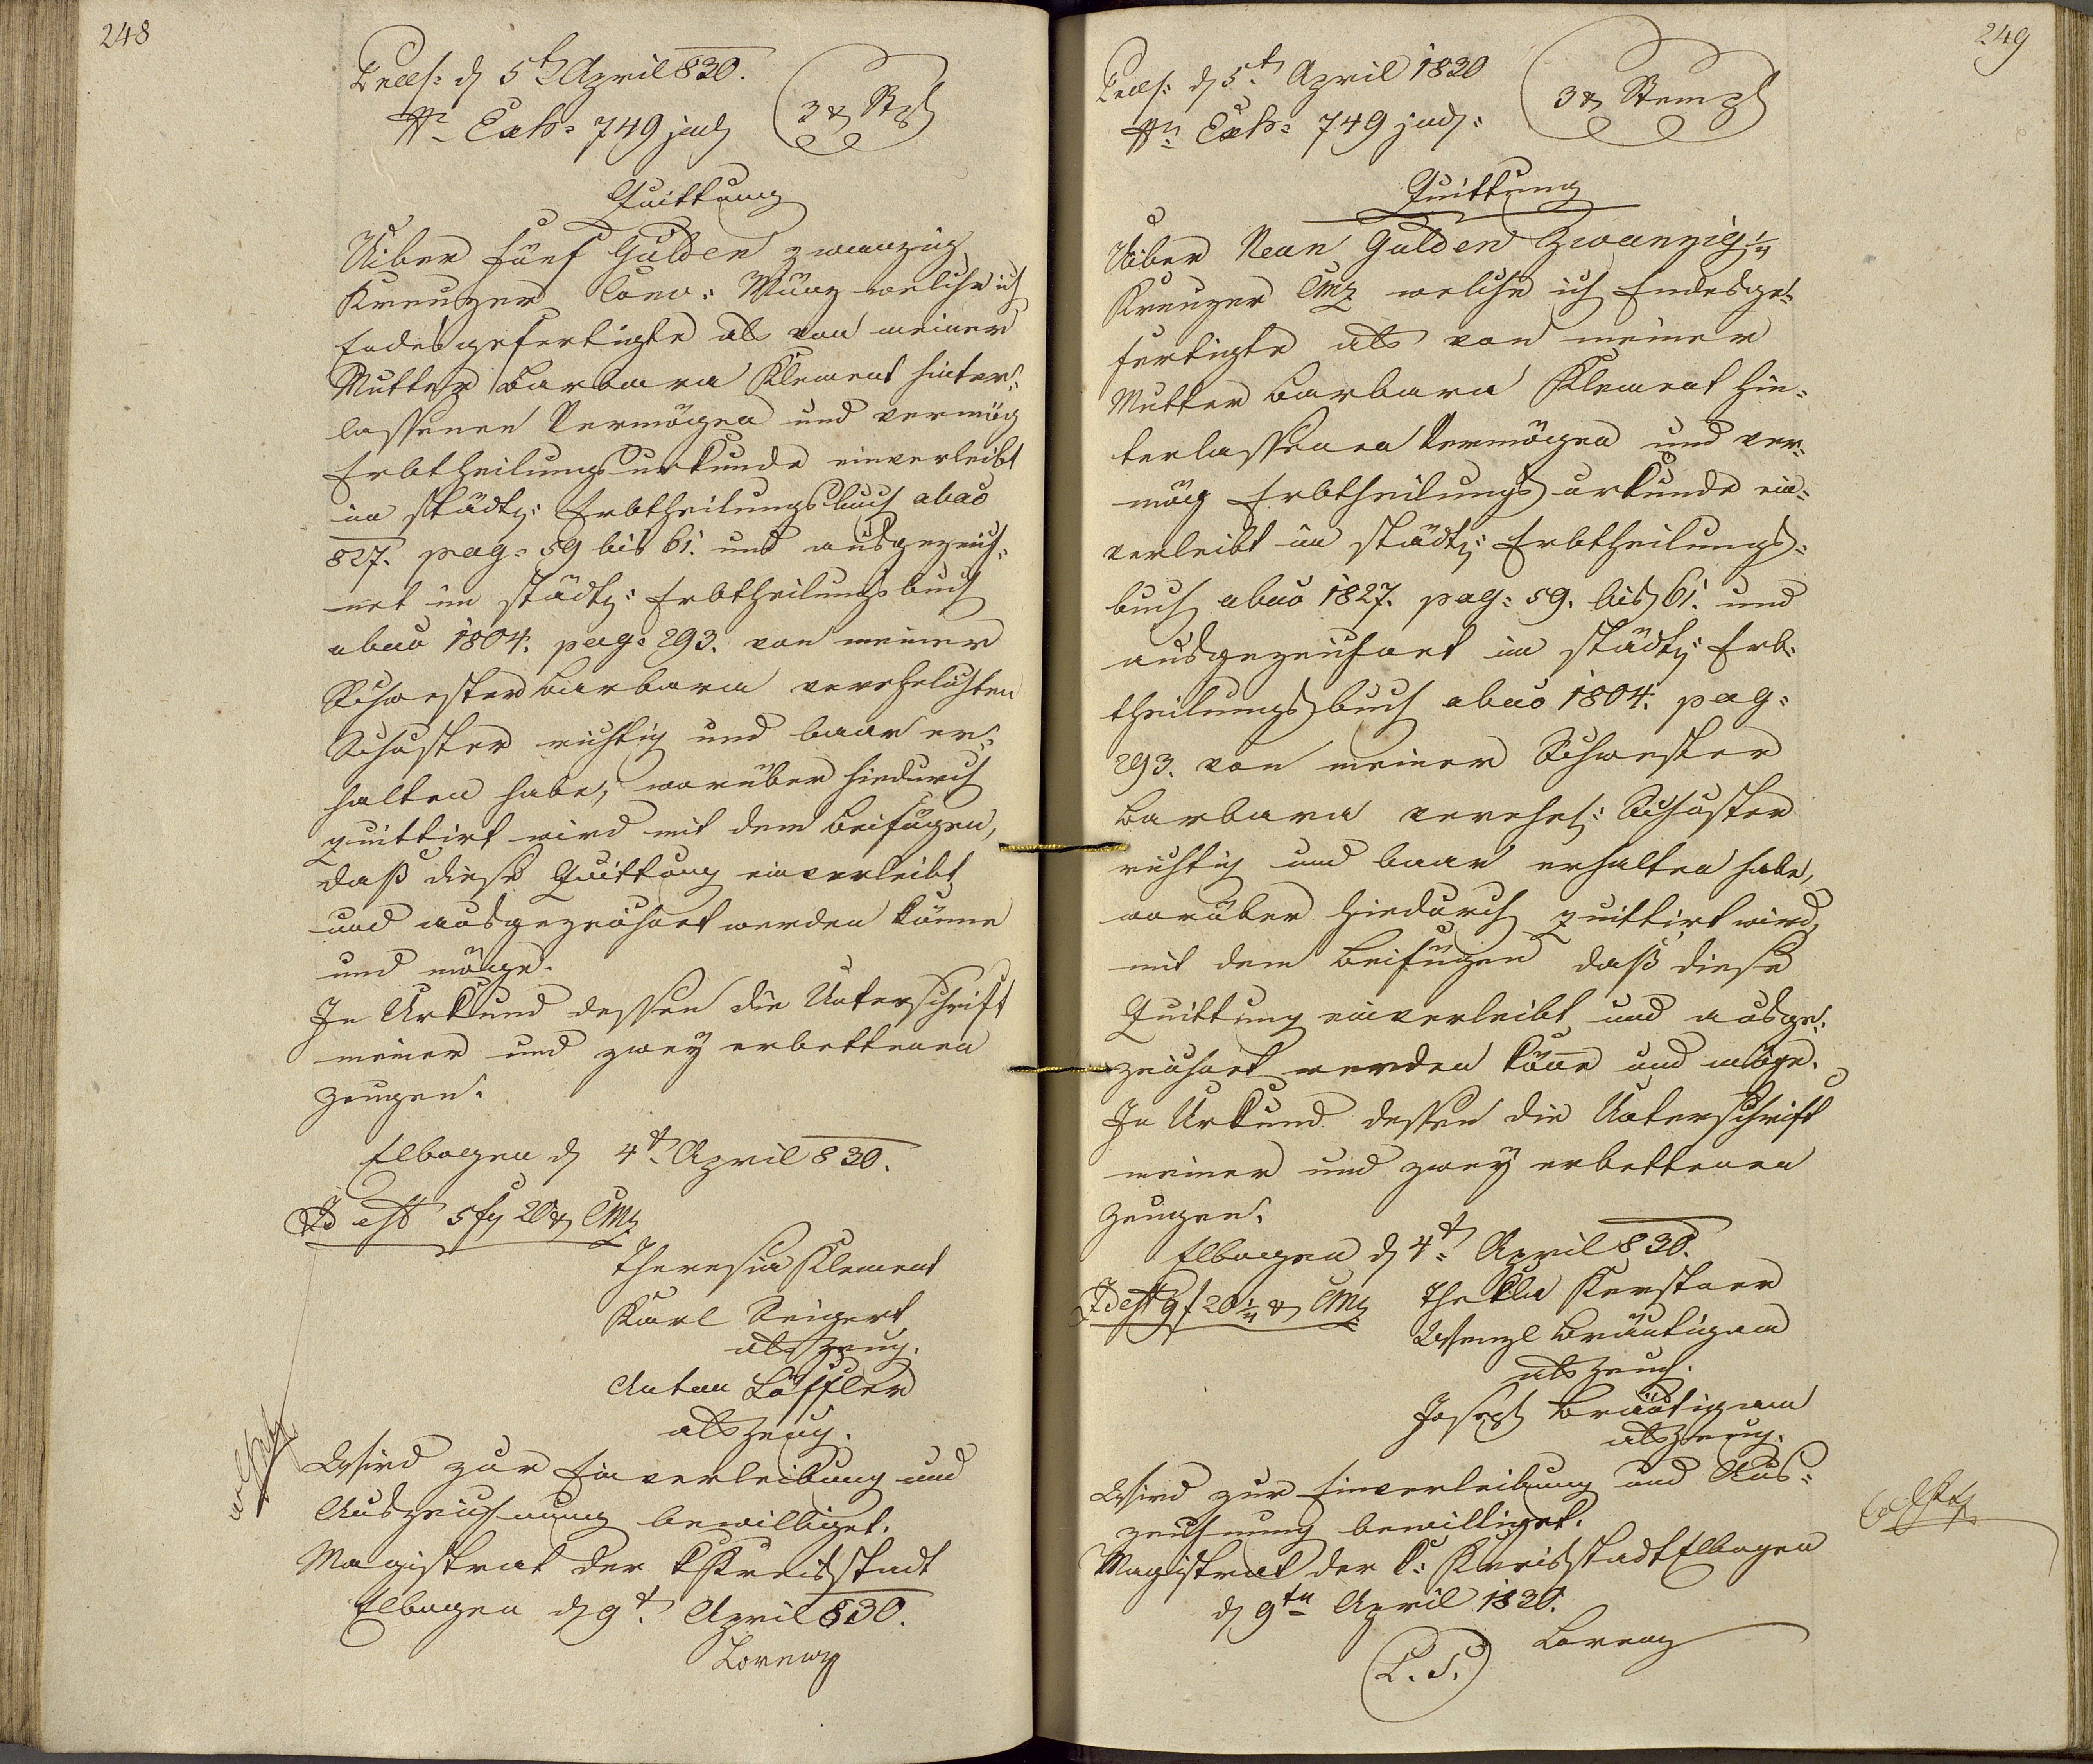 248
Praes: d 5t April 830.
Nr Exh: 749 jud
3 x Stpl
Quittung
Uiber fünf Gulden zwanzig
Kreuzer Conv: Münz welche ich
Endesgefertigte als von meiner
Mutter Barbara Klement hinter:
lassenen Vermögen und vermög
Erbtheilungsurkunde einverleibt
im städt: Erbtheilungsbuch abao
827. pag: 59 bis 61. und ausgezeich:
net im städt: Erbtheilungsbuch
abao 1804. pag: 293. von meiner
Schwester Barbara verehelichten
Schuster richtig und baar er:
halten habe, worüber hiedurch
quittirt wird mit dem Beifügen,
daß diese Quittung einverleibt
und ausgezeichnet werden könne
und möge.
In Urkund dessen die Unterschrift
meiner und zwey erbettenen
Zeugen.
Elbogen d 4t April 830.
Id est 5 f 20 x CMz
Theresia Klement
Karl Seigert
als Zeug.
Anton Löffler
als Zeug.
Wird zur Einverleibung und
Auszeichnung bewilliget.
Magistrat der k Kreisstadt
Elbogen d 9t April 830.
Lorenz
249
Praes: d 5t April 1830
Nr Exh: 749 jud:
3 x Stempl
Quittung
Uiber Neun Gulden Zwanzig 1/4
Kreuzer CMz welche ich Endesge:
fertigte als von meiner
Mutter Barbara Klement hin:
terlassenen Vermögen und ver:
mög Erbtheilungsurkunde ein:
verleibt im städt: Erbtheilungs:
buch abao 1827. pag: 59. bis 61. und
ausgezeichnet im städt: Erb:
theilungsbuch abao 1804. pag:
293. von meiner Schwester
Barbara verehel: Schuster
richtig und baar erhalten habe,
worüber hiedurch quittirt wird,
mit dem Beifügen daß diese
Quittung einverleibt und ausge:
zeichnet werden könne und möge.
In Urkund dessen die Unterschrift
meiner und zwey erbettenen
Zeugen.
Elbogen d 4t April 830.
Id est 9 f 20 1/4 x CMz
Thekla Kerstner
Wenzl Bräutigam
als Zeug.
Joseph Bräutigam
als Zeug.
Wird zur Einverleibung und Aus:
zeichnung bewilliget.
Magistrat der k: Kreisstadt Elbogen
d 9tn April 1830.
Lorenz
(L. S.)